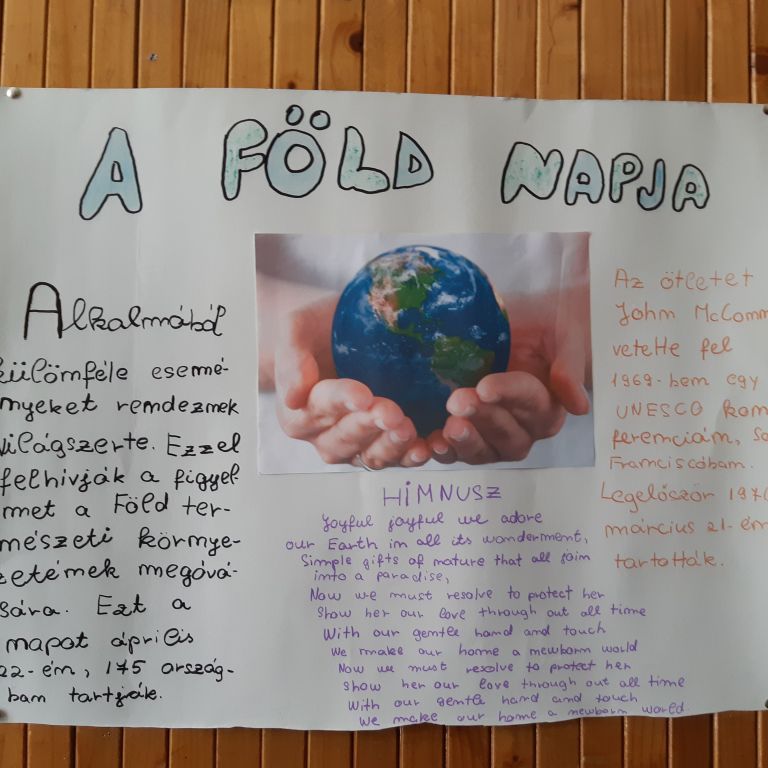 A FÖLD NAPJA
Alkalmából
különféle esemé-
nyeket rendeznek
világszerte. Ezzel
felhívják a figyel
met a Föld ter-
mészeti környe-
zetének megóvá-
sára. Ezt a
napot április
22-én, 175 ország-
ban tartják.
HIMNUSZ
Joyful joyful we adore
our Earth in all its wonderment,
Simple gifts of nature that all join
into a paradise,
Now we must resolve to protect her
Show her our love through out all time
With our gentle hand and touch
We make our home a newborn world
Now we must resolve to protect her
show her our love through out all time
With our gentle hand and touch
We make our home a newborn world.
Az ötletet
John McConn
vetette fel
1969-ben egy
UNESCO kon
ferencián, Sa
Franciscóban.
Legelőször 1970
március 21-én
tartották.